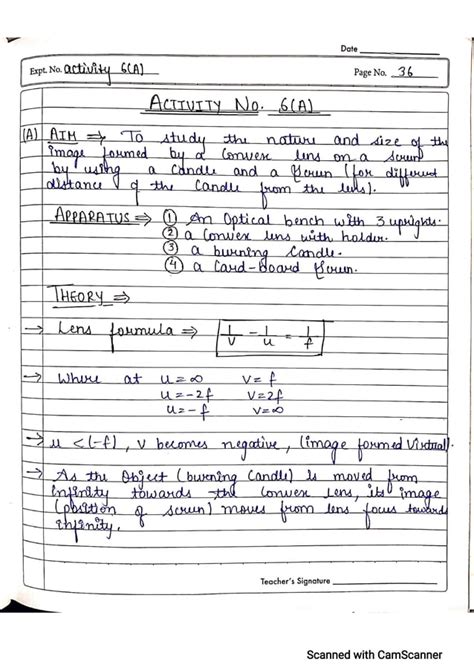 Date
Expt. No. activity 6(A)
Page No. 36
ACTIVITY NO. 6(A)
(A) AIM ⇒ To study the nature and size of the
image formed by a Convex lens on a Screen
by using a Candle and a Screen (for different
distance of the Candle from the lens).
APPARATUS ⇒ ① An Optical bench with 3 uprights.
② a Convex lens with holder.
③ a burning Candle.
④ a Card-Board Screen.
THEORY ⇒
→ Lens formula ⇒ 1/v - 1/u = 1/f
→ Where at u=∞ v=f
u=-2f v=2f
u=-f v=∞
→ u <(-f), v becomes negative, (image formed Virtual).
→ As the Object (burning Candle) is moved from
infinity towards the Convex Lens, its image
(position of screen) moves from lens focus towards
infinity.
Teacher's Signature
Scanned with CamScanner